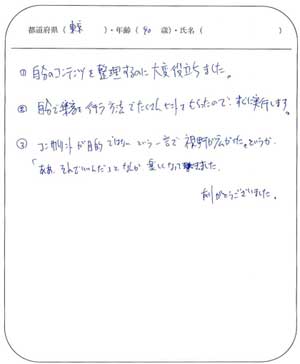 都道府県（東京　）・年齢（40　歳）・氏名（　　　）
① 自分のコンテンツを整理するのに大変役立ちました。
② 自分で集客を行う方法でたくさんヒントもらったので、すぐに実行します。
③ コンサルが目的ではないという一言で視野が広がった。というか
「ああ それでいいんだ」となんか楽しくなってきました。
ありがとうございました。